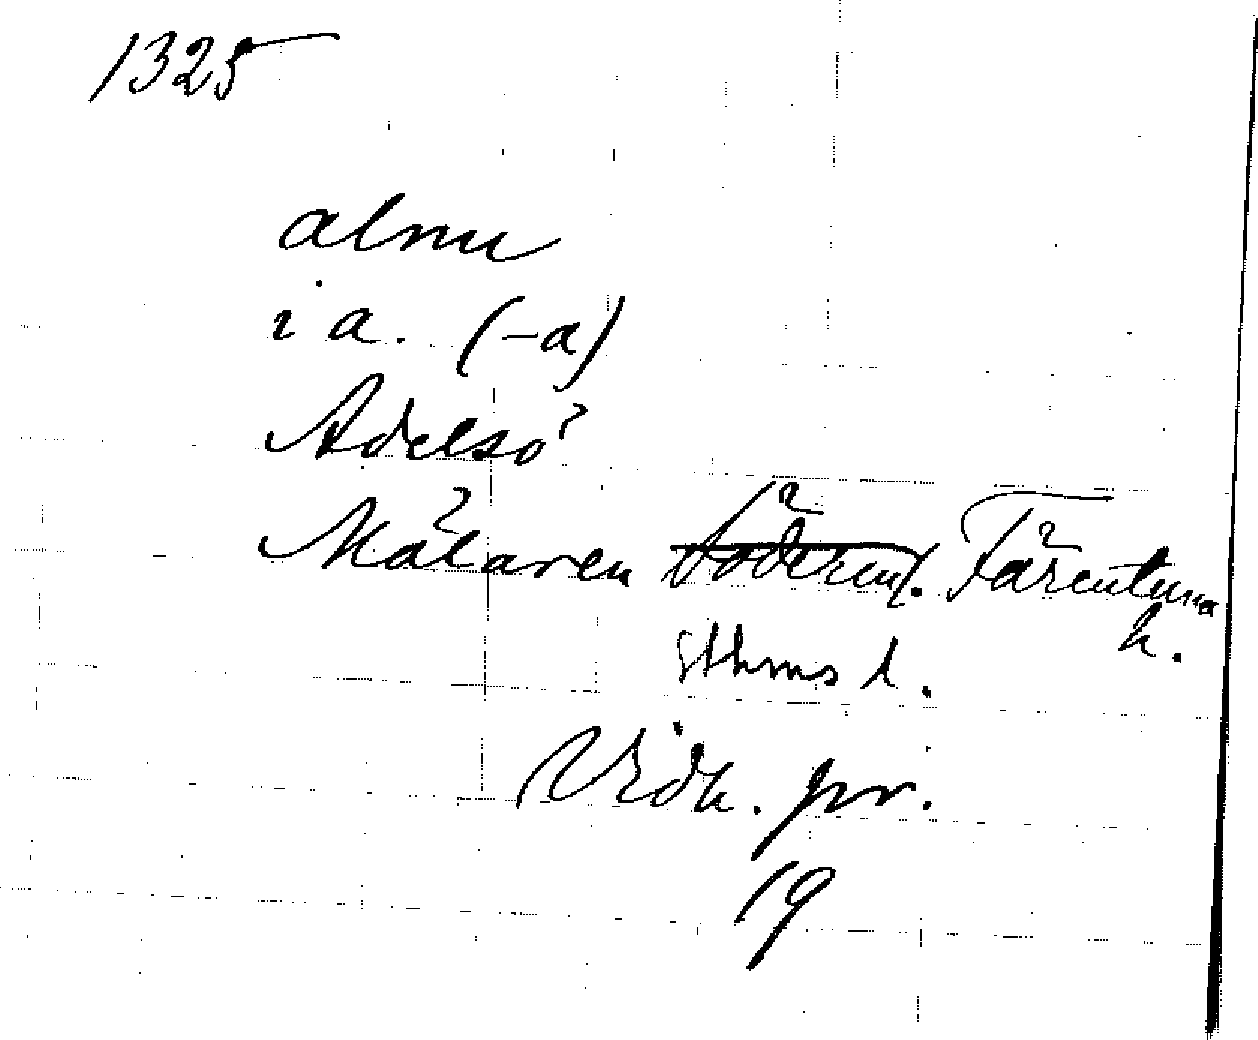 1325
alnu
i a. (-a)
Adelsö
Mälaren Söderml. Färentuna
h.
Sthms l.
Vidh. pr.
19